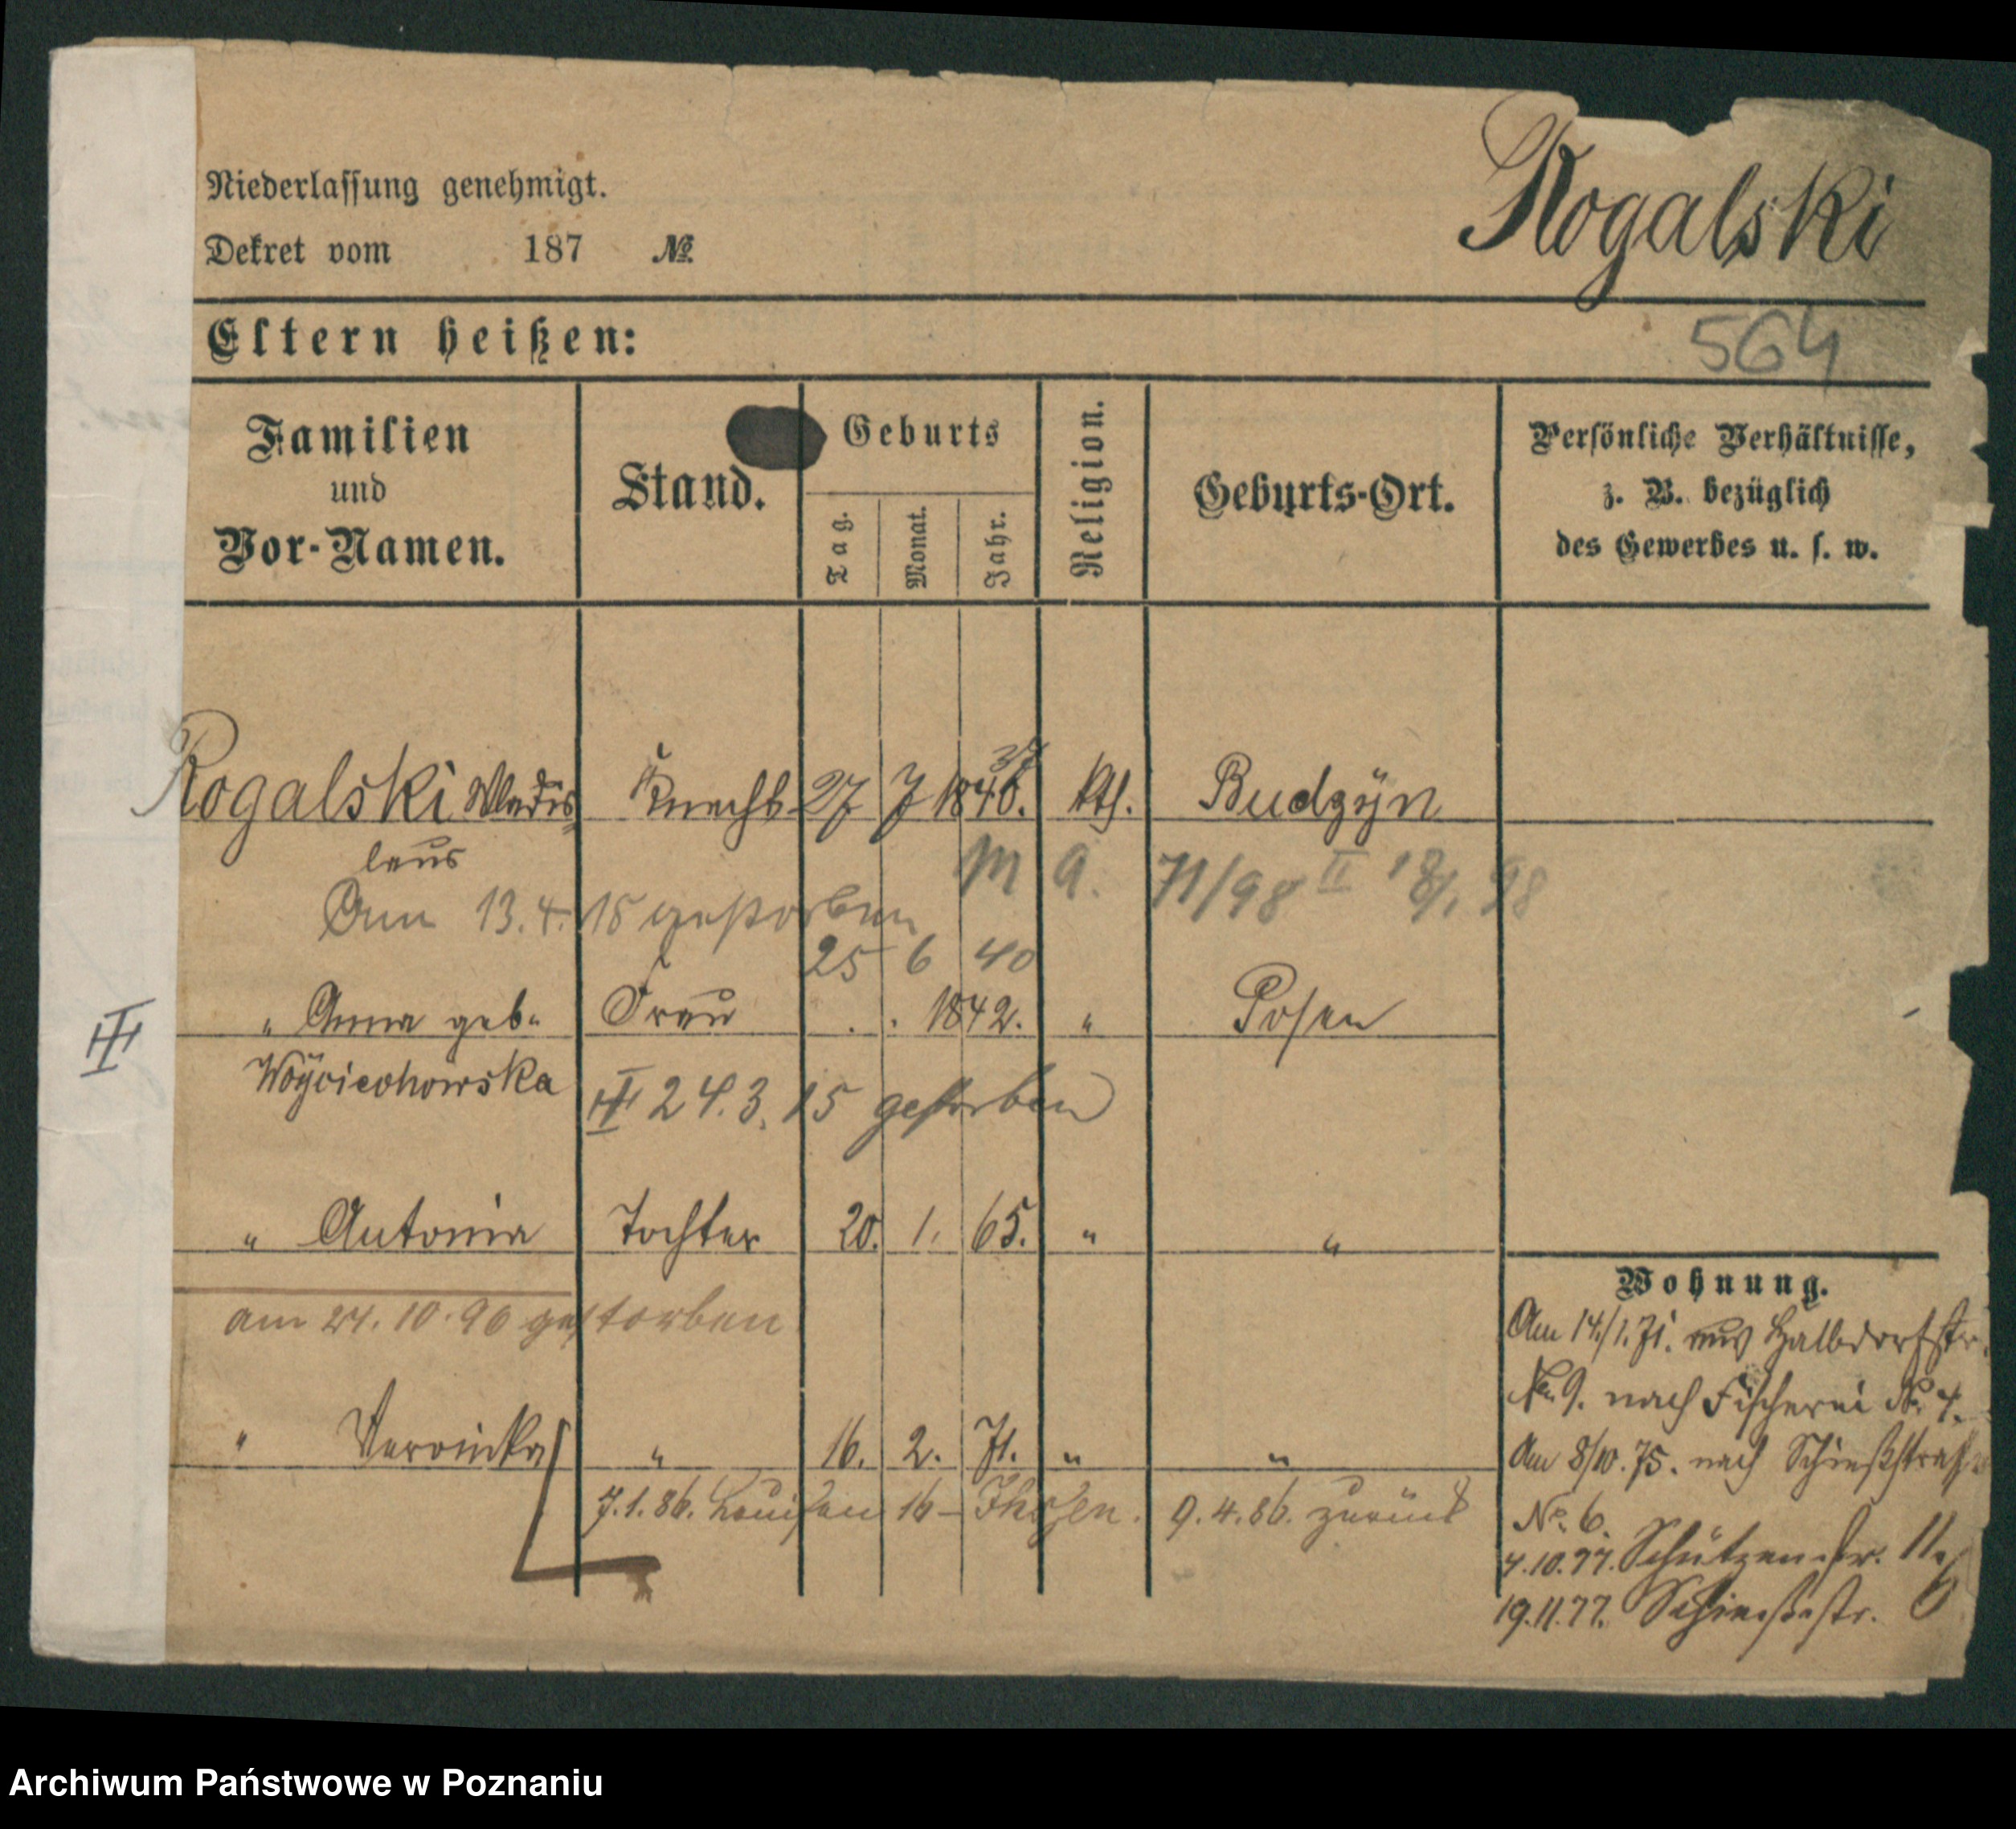 Rogalski
Niederlassung genehmigt.
Dekret vom 187 №
Eltern heißen:
564
Familien und Vor-Namen.
Stand.
Geburts
Tag. Monat. Jahr.
Religion.
Geburts-Ort.
Persönliche Verhältnisse,
z. B. bezüglich
des Gewerbes u. s. w.
37
Rogalski Wladis Knecht 27 7 1840. kth. Budzÿn
laus
M A. 71/98 II 18/1 98
Am 13.4.15 gestorben
25 6 40
" Anna geb. Frau . . 1842. " Posen
III
Woÿciechowska
III 24.3.15 gestorben
" Antonia Tochter 20. 1. 65. " "
am 24.10.96 gestorben
" Veronika " 16. 2. 71. " "
7.1.86. Louisen 16 - 9.4.86. zurück
Wohnung.
Am 14./1.71. aus Halbdorfstr.
No 9. nach Fischerei No. 4.
Am 8/10.75. nach Schießstraße
No. 6.
4.10.77. Schützenstr. 11.
19.11.77. Schießstr. 6
Archiwum Państwowe w Poznaniu